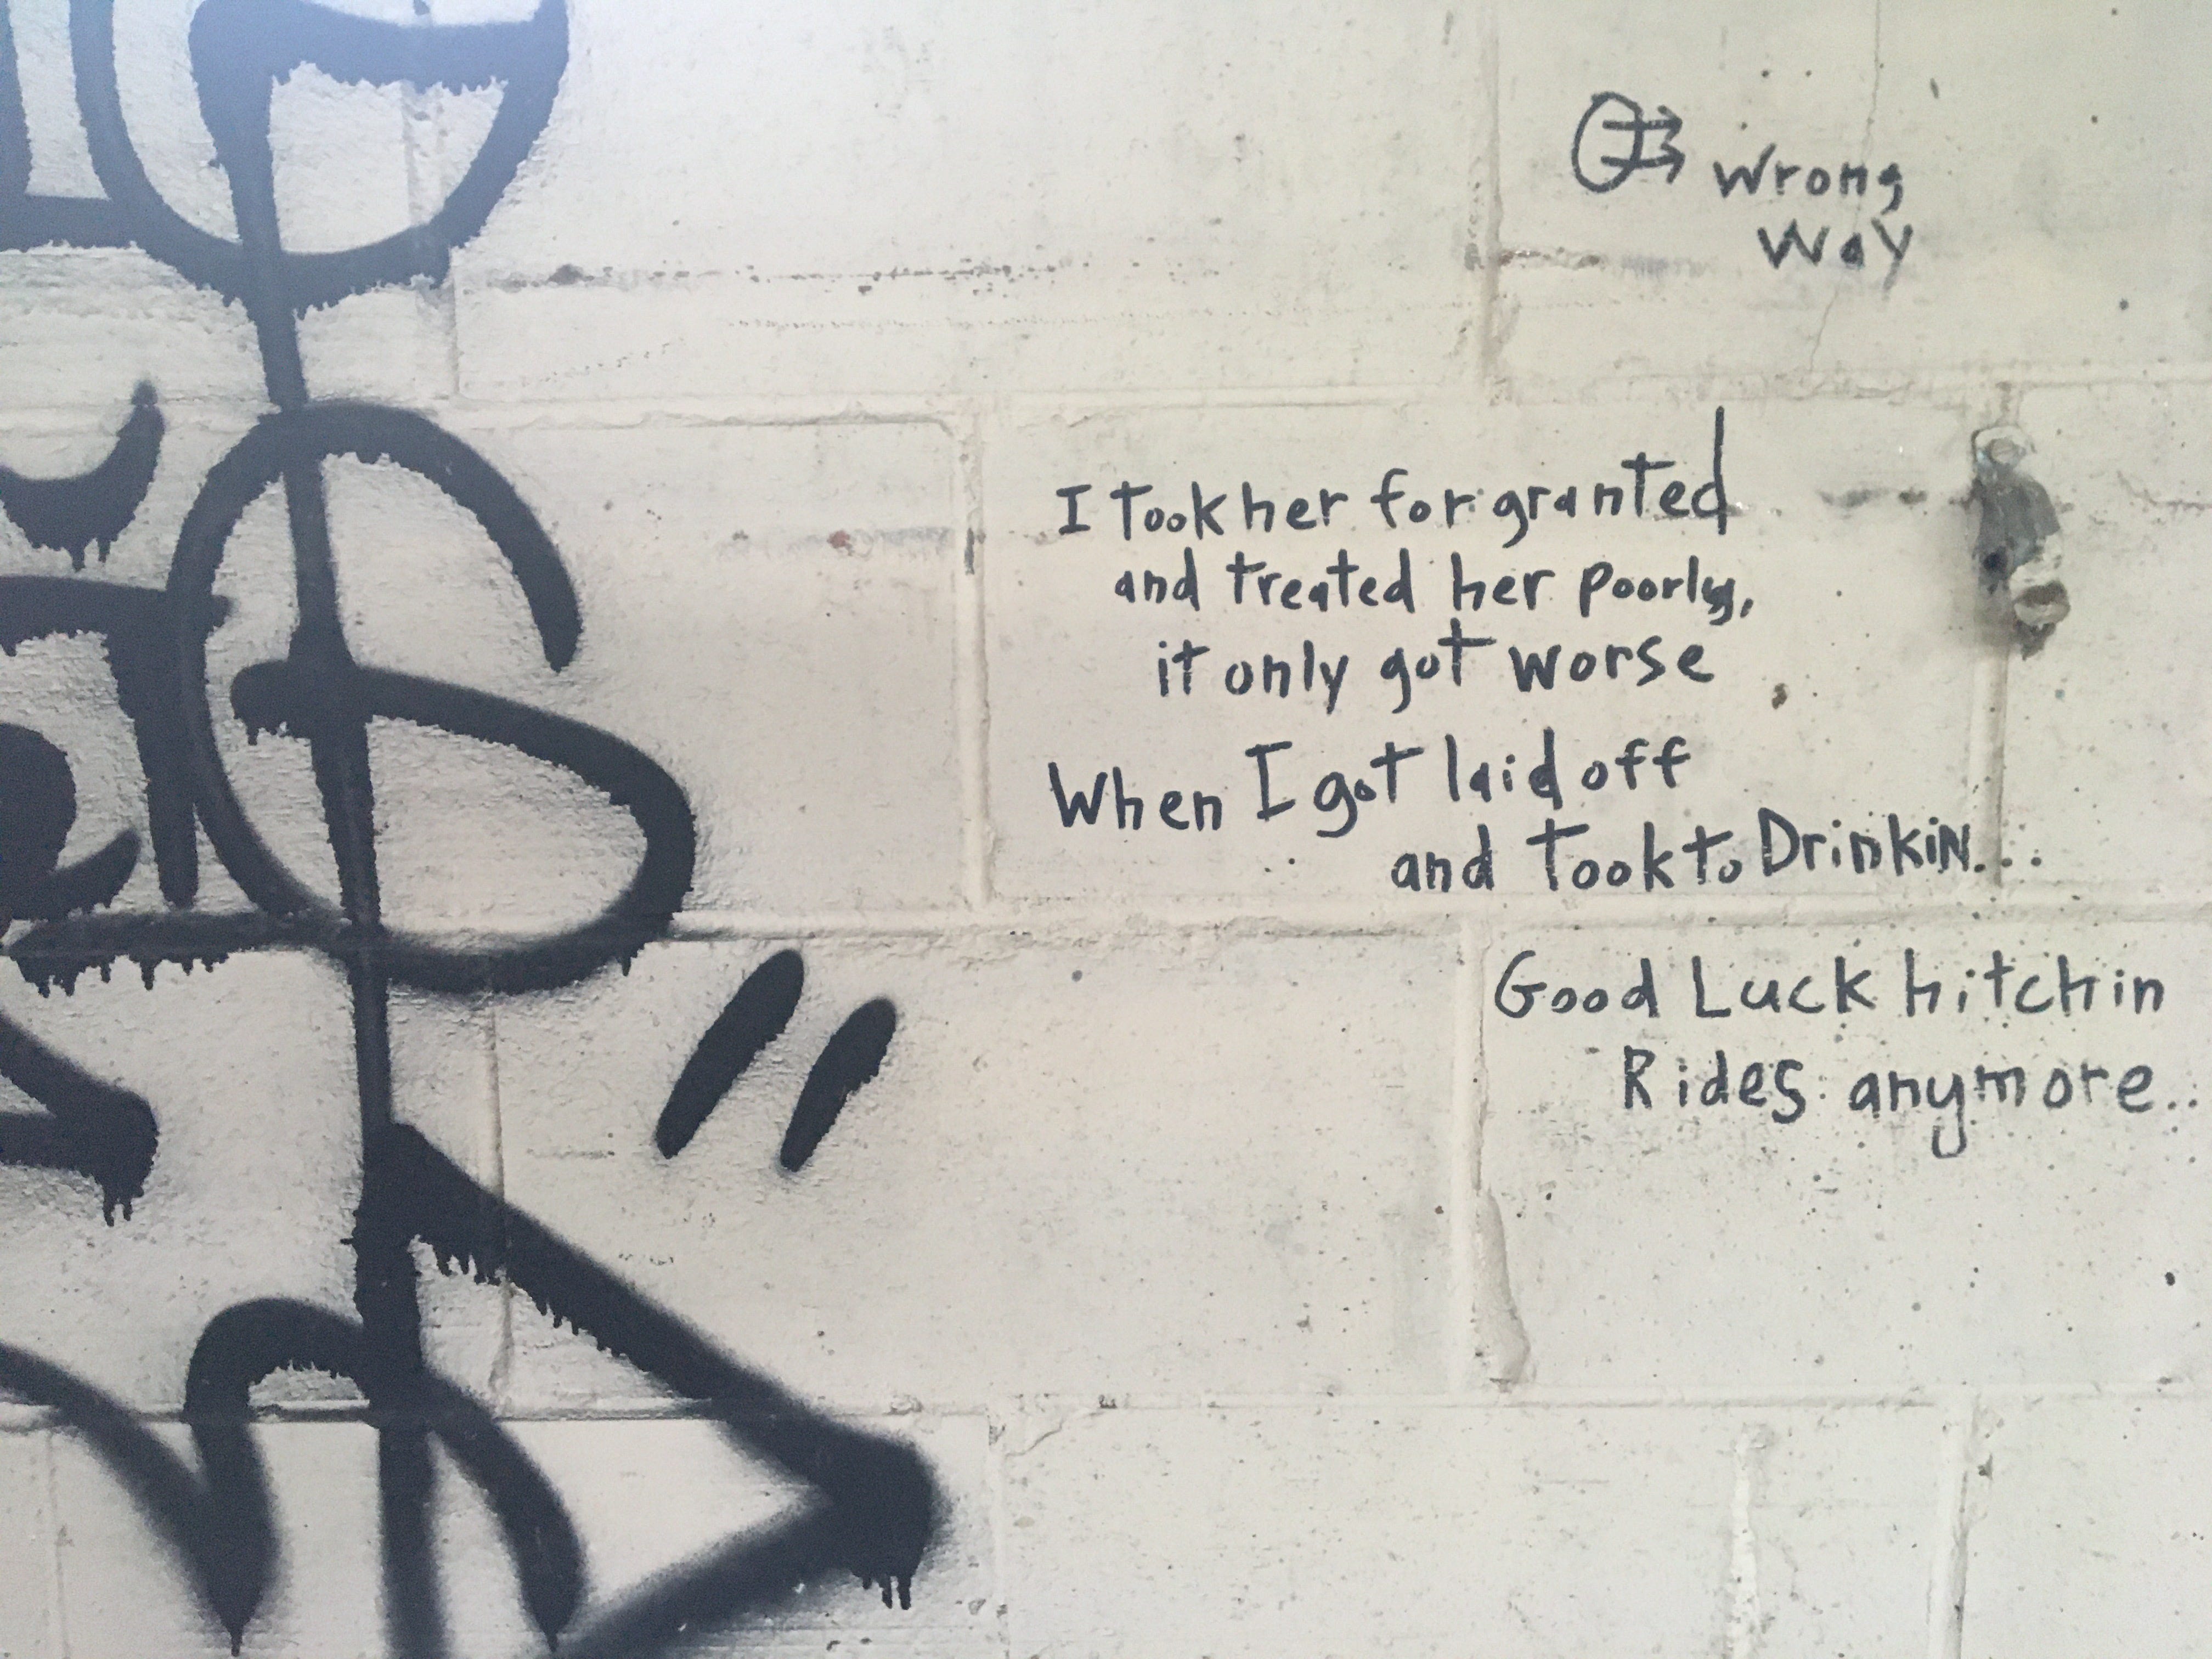 Wrong
Way
I Took her for granted
and treated her poorly,
it only got worse
When I got laid off
and Took to DrinkiN...
Good Luck hitchin
Rides anymore..